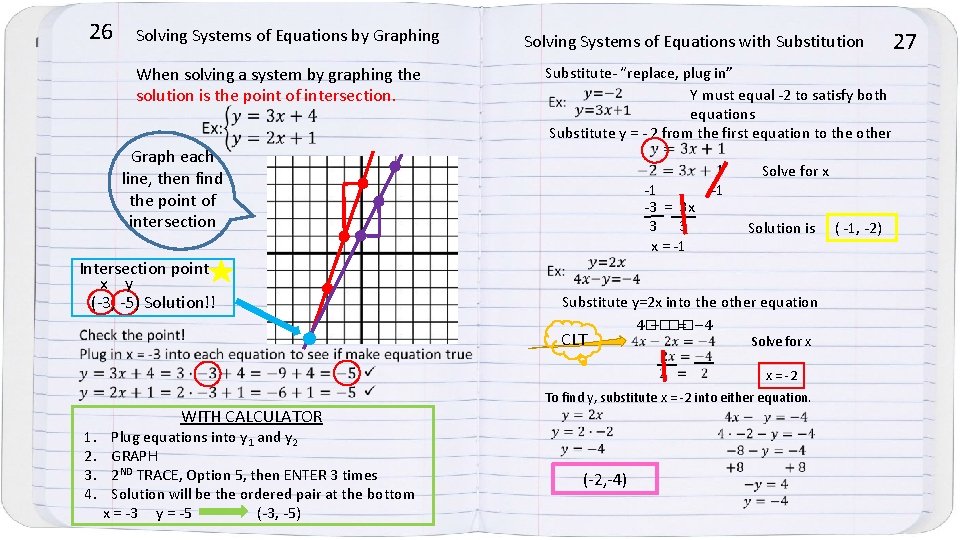 26
Solving Systems of Equations by Graphing
When solving a system by graphing the
solution is the point of intersection.
Ex: {y = 3x + 4
y = 2x + 1
Graph each
line, then find
the point of
intersection
Intersection point
x y
(-3, -5) Solution!!
Check the point!
Plug in x = -3 into each equation to see if make equation true
y = 3x + 4 = 3 · −3 + 4 = −9 + 4 = −5 ✓
y = 2x + 1 = 2 · −3 + 1 = −6 + 1 = −5 ✓
WITH CALCULATOR
1. Plug equations into y1 and y2
2. GRAPH
3. 2ND TRACE, Option 5, then ENTER 3 times
4. Solution will be the ordered pair at the bottom
x = -3 y = -5 (-3, -5)
Solving Systems of Equations with Substitution
27
Substitute- “replace, plug in”
Ex: y=−2
y=3x+1
Y must equal -2 to satisfy both
equations
Substitute y = - 2 from the first equation to the other
y = 3x + 1
−2 = 3x + 1 Solve for x
-1 -1
-3 = 3x
3 3
x = -1
Solution is ( -1, -2)
Ex: y=2x
4x−y=−4
Substitute y=2x into the other equation
CLT
4□−□□=□−4
4x − 2x = −4 Solve for x
2x = −4
2 = 2
x = -2
To find y, substitute x = -2 into either equation.
y = 2x
y = 2 · −2
y = −4
(-2, -4)
4x − y = −4
4 · −2 − y = −4
−8 − y = −4
+8 + 8
−y = 4
y = −4